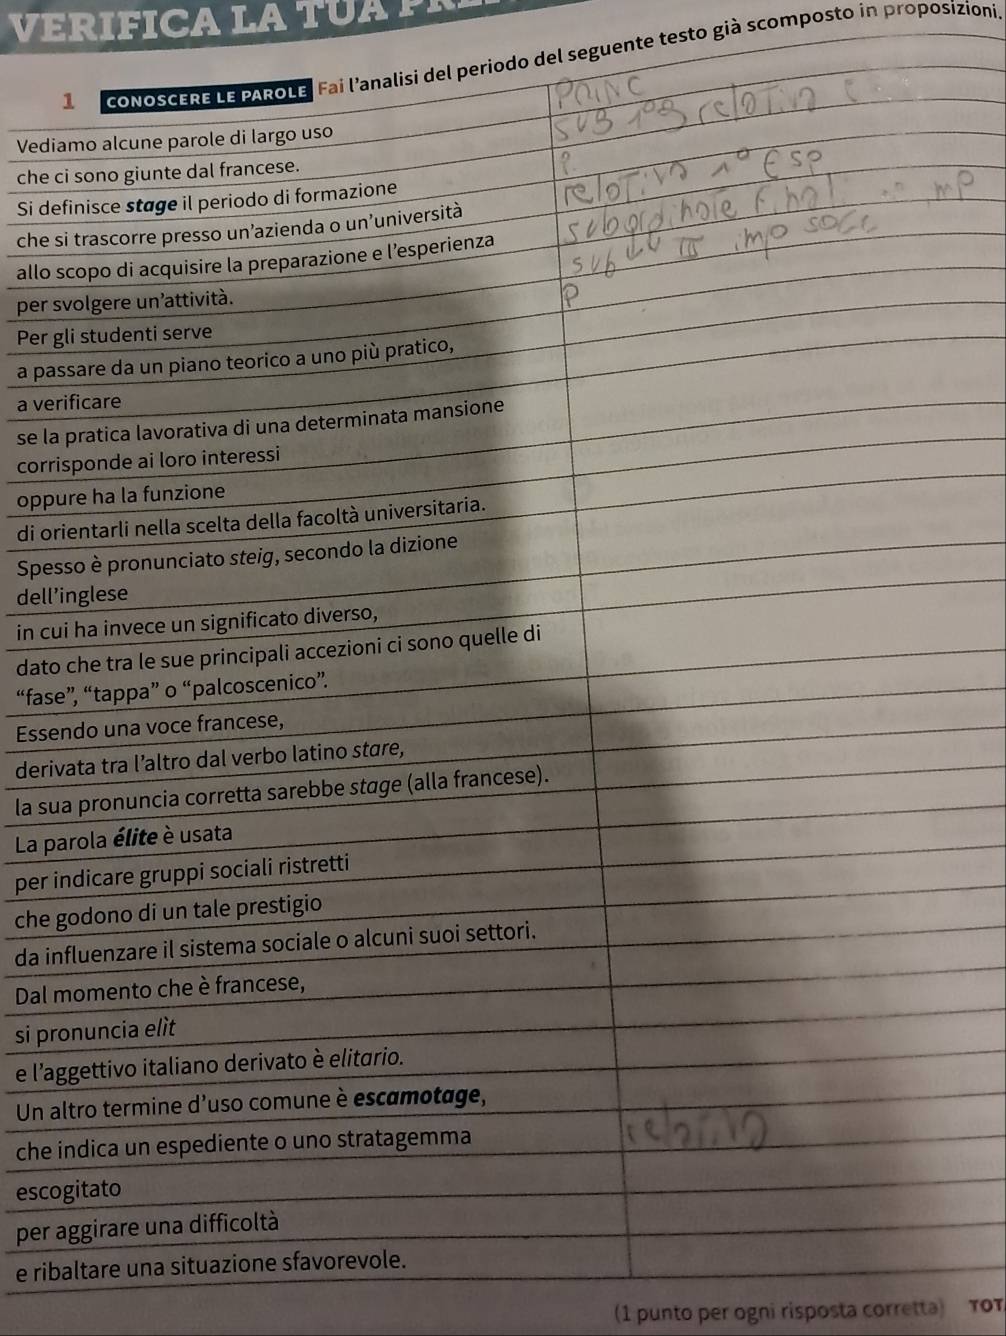 VERIFICA LA TUA
1 CONOSCERE LE PAROLE Fai l'analisi del periodo del seguente testo già scomposto in proposizioni.
Vediamo alcune parole di largo uso PRINC
che ci sono giunte dal francese. SUB 1° relativa
Si definisce stage il periodo di formazione P.
che si trascorre presso un'azienda o un'università relativa 1° ESP
allo scopo di acquisire la preparazione e l'esperienza subordinate final imp
per svolgere un'attività. sub imp
Per gli studenti serve P
a passare da un piano teorico a uno più pratico,
a verificare
se la pratica lavorativa di una determinata mansione
corrisponde ai loro interessi
oppure ha la funzione
di orientarli nella scelta della facoltà universitaria.
Spesso è pronunciato steig, secondo la dizione
dell'inglese
in cui ha invece un significato diverso,
dato che tra le sue principali accezioni ci sono quelle di
“fase”, “tappa” o “palcoscenico”.
Essendo una voce francese,
derivata tra l'altro dal verbo latino stare,
la sua pronuncia corretta sarebbe stage (alla francese).
La parola élite è usata
per indicare gruppi sociali ristretti
che godono di un tale prestigio
da influenzare il sistema sociale o alcuni suoi settori.
Dal momento che è francese,
si pronuncia elìt
e l'aggettivo italiano derivato è elitario.
Un altro termine d'uso comune è escamotage,
che indica un espediente o uno stratagemma relativa
escogitato
per aggirare una difficoltà
e ribaltare una situazione sfavorevole.
(1 punto per ogni risposta corretta) TOT